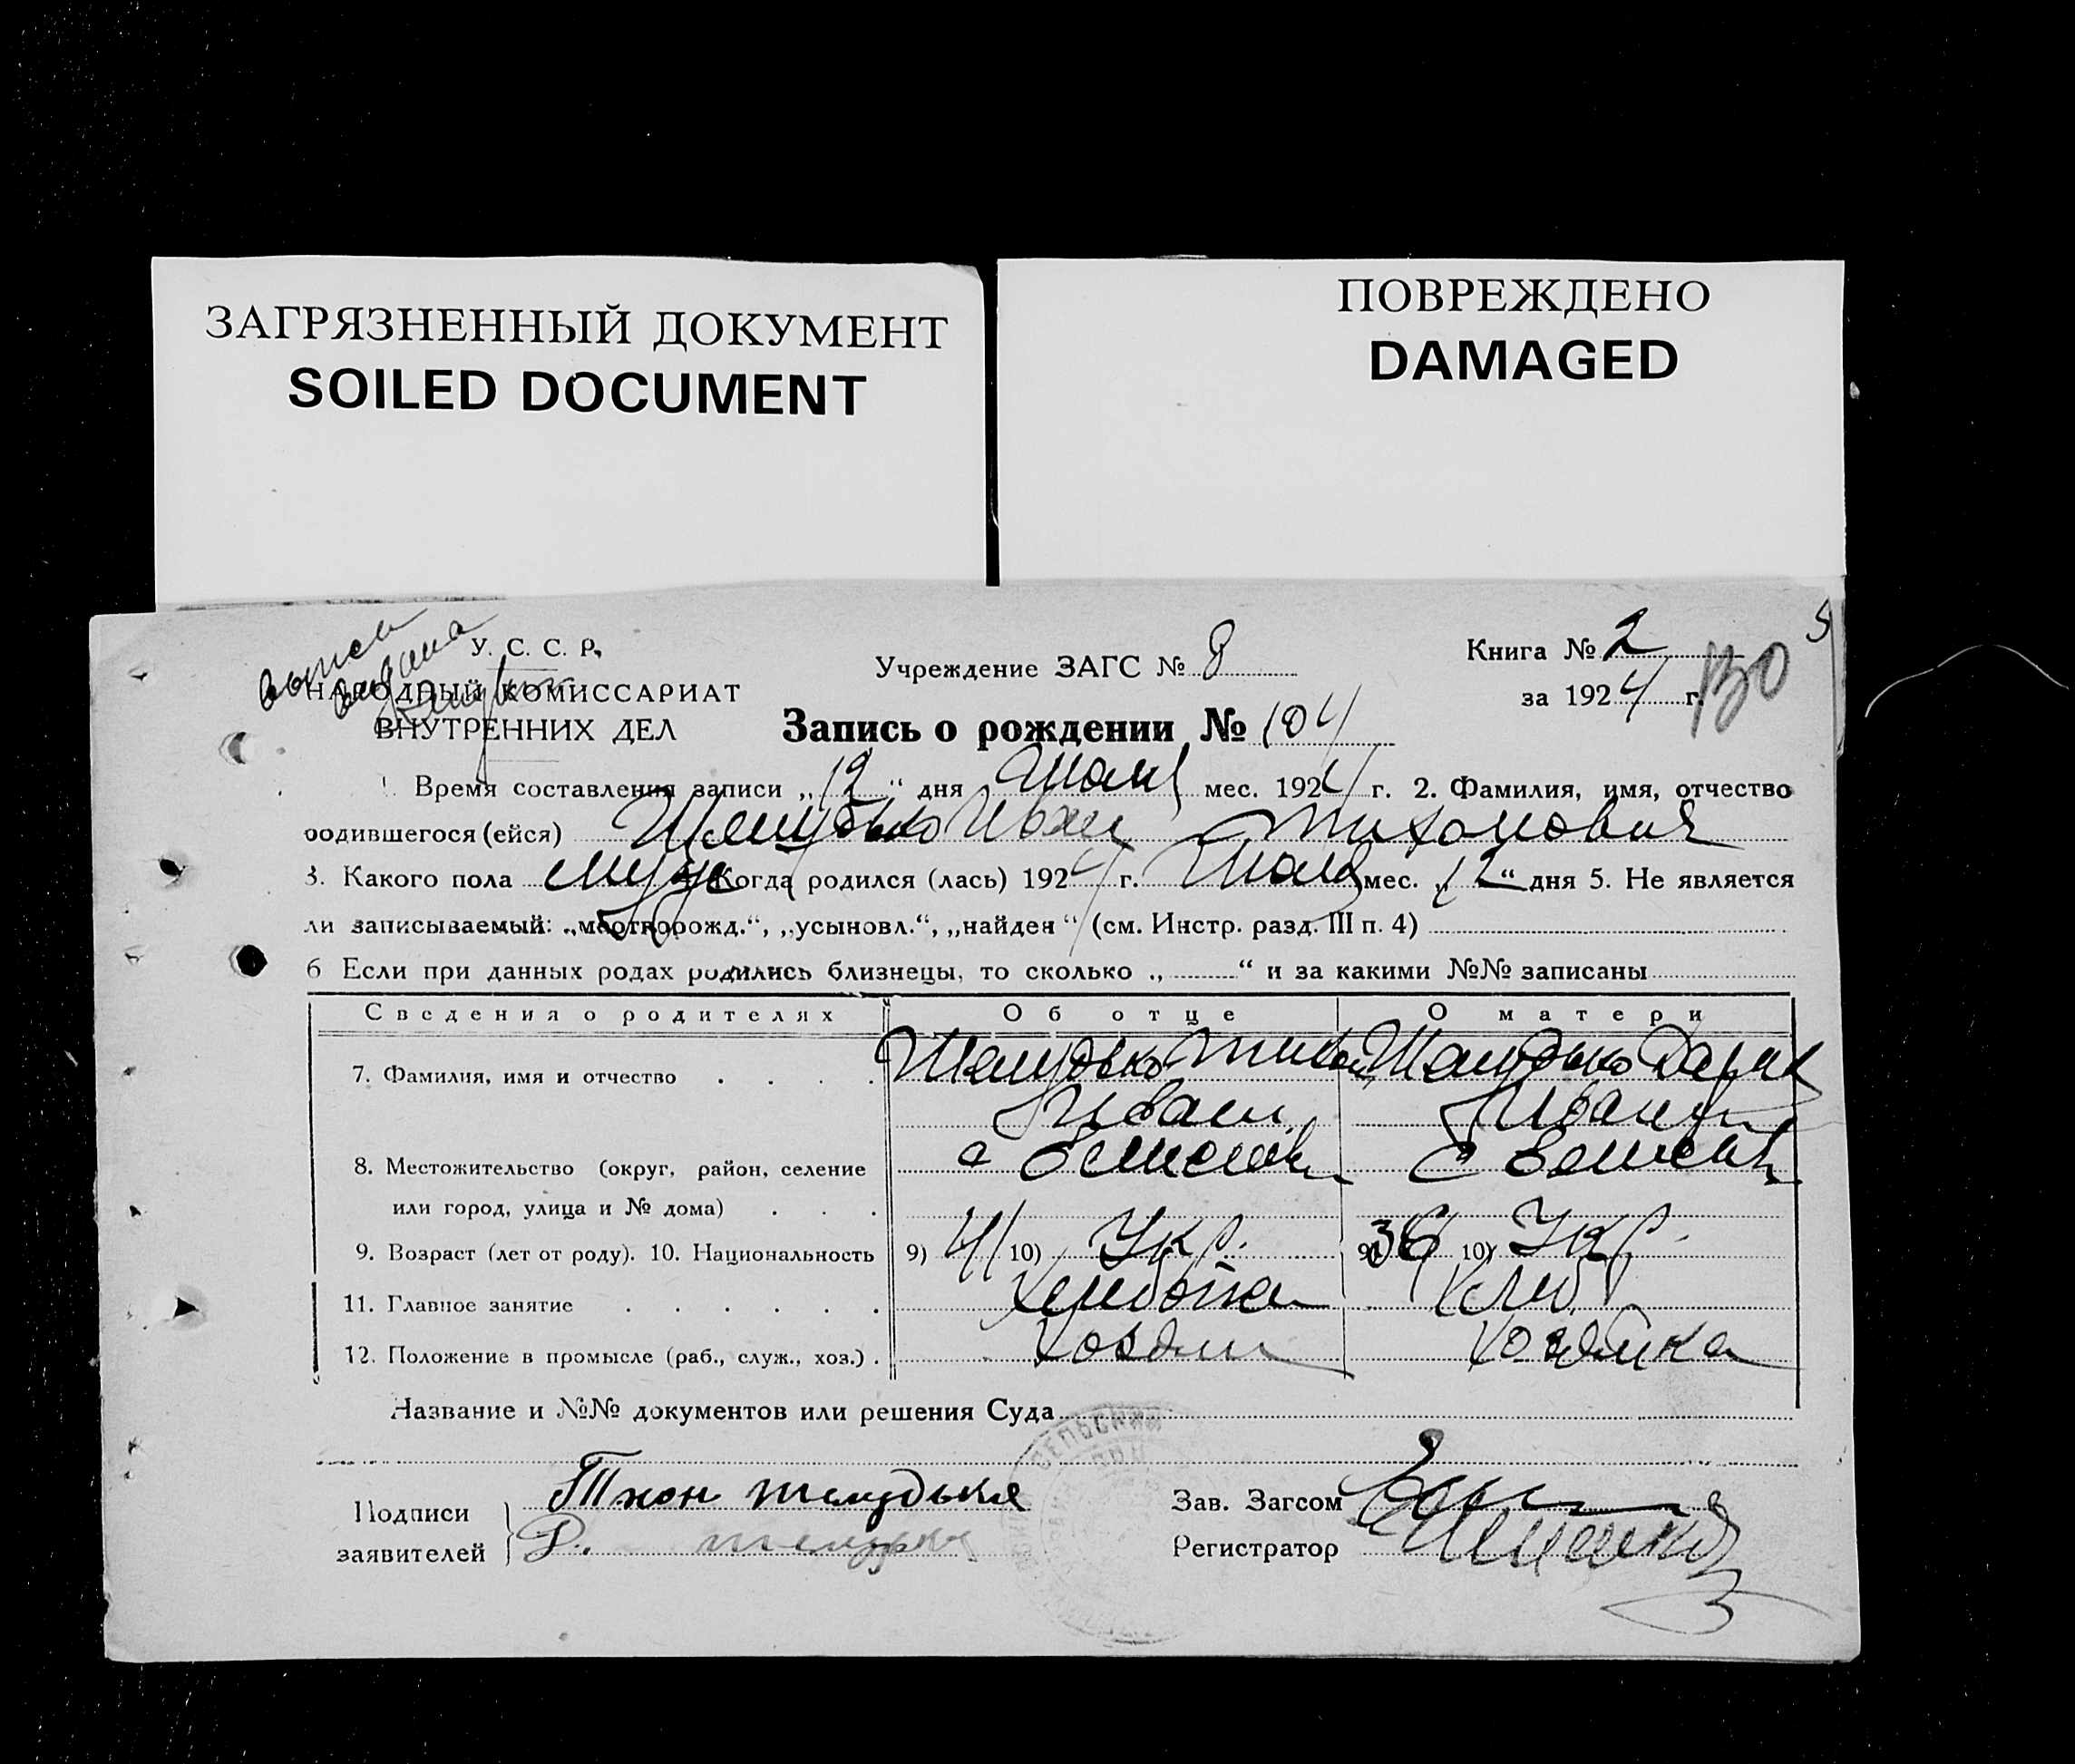 ЗАГРЯЗНЕННЫЙ ДОКУМЕНТ
SOILED DOCUMENT
ПОВРЕЖДЕНО
DAMAGED
У. С. С. Р.
НАРОДНЫЙ КОМИССАРИАТ
ВНУТРЕННИХ ДЕЛ
Учреждение ЗАГС № 8
Книга № 2
за 1924 г.
130
Запись о рождении № 104
1. Время составления записи „12“ дня мес. 1924 г. 2. Фамилия, имя, отчество
родившегося (ейся) Иван Тихонович
3. Какого пола муж. 4. Когда родился (лась) 1924 г. мес. „12“ дня 5. Не является
ли записываемый: „мертворожд.“, „усыновл.“, „найден“ (см. Инстр. разд. III п. 4)
6 Если при данных родах родились близнецы, то сколько „ “ и за какими №№ записаны
Сведения о родителях Об отце О матери
7. Фамилия, имя и отчество Шемудько Тихон Шемудько Дарья
Иван. Иван
8. Местожительство (округ, район, селение с с
или город, улица и № дома)
9. Возраст (лет от роду). 10. Национальность 9) 41 10) Укр. 9) 36 10) Укр.
11. Главное занятие Хлебопаш Хлеб.
12. Положение в промысле (раб., служ., хоз.) Хозяин Хозяйка
Название и №№ документов или решения Суда
СЕЛЬСКИЙ
Подписи Тхон
заявителей
Зав. Загсом
Регистратор